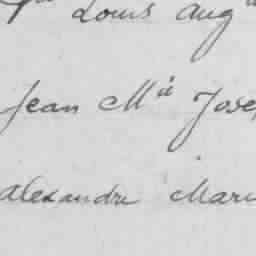 Louis Aug
Jean Mie Jose
Alexandre Marie